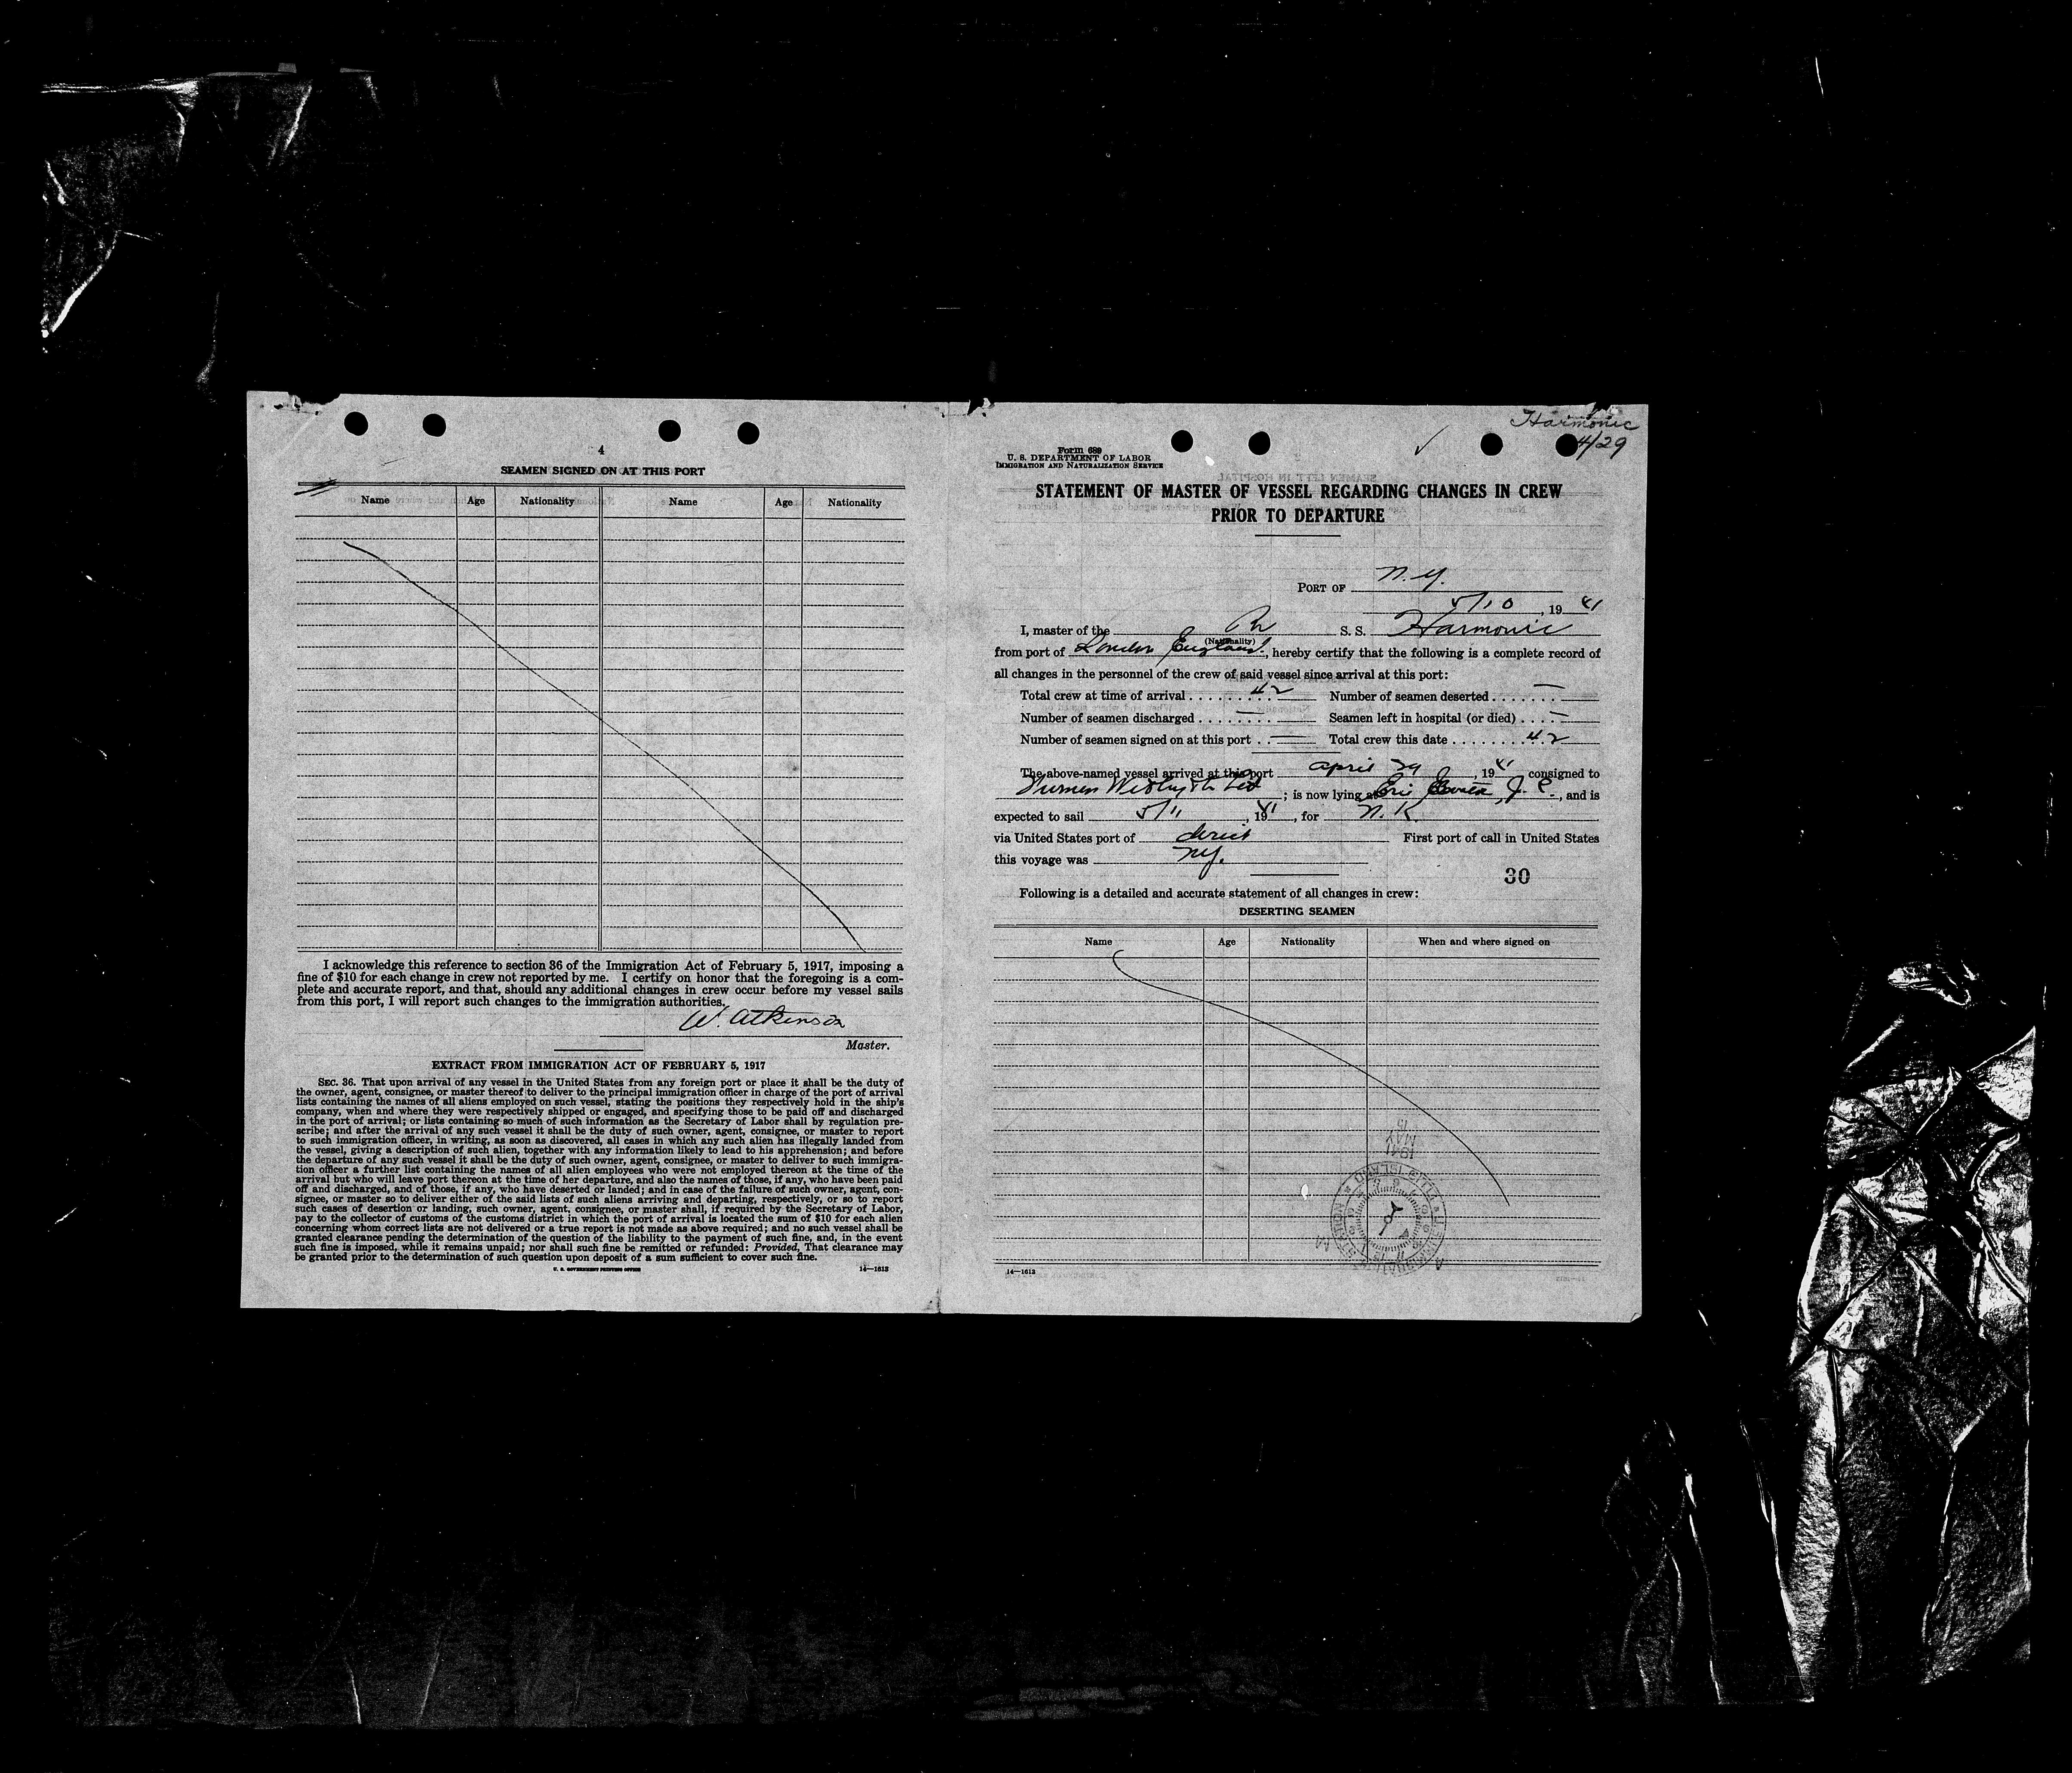 4
SEAMEN SIGNED ON AT THIS PORT
Name Age Nationality Name Age Nationality
I acknowledge this reference to section 36 of the Immigration Act of February 5, 1917, imposing a
fine of $10 for each change in crew not reported by me. I certify on honor that the foregoing is a com-
plete and accurate report, and that, should any additional changes in crew occur before my vessel sails
from this port, I will report such changes to the immigration authorities.
W. Atkinson
Master.
EXTRACT FROM IMMIGRATION ACT OF FEBRUARY 5, 1917
SEC. 36. That upon arrival of any vessel in the United States from any foreign port or place it shall be the duty of
the owner, agent, consignee, or master thereof to deliver to the principal immigration officer in charge of the port of arrival
lists containing the names of all aliens employed on such vessel, stating the positions they respectively hold in the ship's
company, when and where they were respectively shipped or engaged, and specifying those to be paid off and discharged
in the port of arrival; or lists containing so much of such information as the Secretary of Labor shall by regulation pre-
scribe; and after the arrival of any such vessel it shall be the duty of such owner, agent, consignee, or master to report
to such immigration officer, in writing, as soon as discovered, all cases in which any such alien has illegally landed from
the vessel, giving a description of such alien, together with any information likely to lead to his apprehension; and before
the departure of any such vessel it shall be the duty of such owner, agent, consignee, or master to deliver to such immigra-
tion officer a further list containing the names of all alien employees who were not employed thereon at the time of the
arrival but who will leave port thereon at the time of her departure, and also the names of those, if any, who have been paid
off and discharged, and of those, if any, who have deserted or landed; and in case of the failure of such owner, agent, con-
signee, or master so to deliver either of the said lists of such aliens arriving and departing, respectively, or so to report
such cases of desertion or landing, such owner, agent, consignee, or master shall, if required by the Secretary of Labor,
pay to the collector of customs of the customs district in which the port of arrival is located the sum of $10 for each alien
concerning whom correct lists are not delivered or a true report is not made as above required; and no such vessel shall be
granted clearance pending the determination of the question of the liability to the payment of such fine, and, in the event
such fine is imposed, while it remains unpaid; nor shall such fine be remitted or refunded: Provided, That clearance may
be granted prior to the determination of such question upon deposit of a sum sufficient to cover such fine.
U. S. GOVERNMENT PRINTING OFFICE 14—1613
Harmonic
4/29
Form 689
U. S. DEPARTMENT OF LABOR
IMMIGRATION AND NATURALIZATION SERVICE
STATEMENT OF MASTER OF VESSEL REGARDING CHANGES IN CREW
PRIOR TO DEPARTURE
PORT OF N.Y.
5/10, 19 41
I, master of the Br S. S. Harmonic
(Nationality)
from port of London England, hereby certify that the following is a complete record of
all changes in the personnel of the crew of said vessel since arrival at this port:
Total crew at time of arrival 42 Number of seamen deserted —
Number of seamen discharged — Seamen left in hospital (or died) —
Number of seamen signed on at this port — Total crew this date 42
The above-named vessel arrived at this port April 29, 1941 consigned to
Ltd; is now lying at Erie J. C., and is
expected to sail 5/11, 1941, for N.K.
via United States port of direct First port of call in United States
this voyage was NY.
30
Following is a detailed and accurate statement of all changes in crew:
DESERTING SEAMEN
Name Age Nationality When and where signed on
1941
MAY
15
ELLIS ISLAND STATION
14—1613